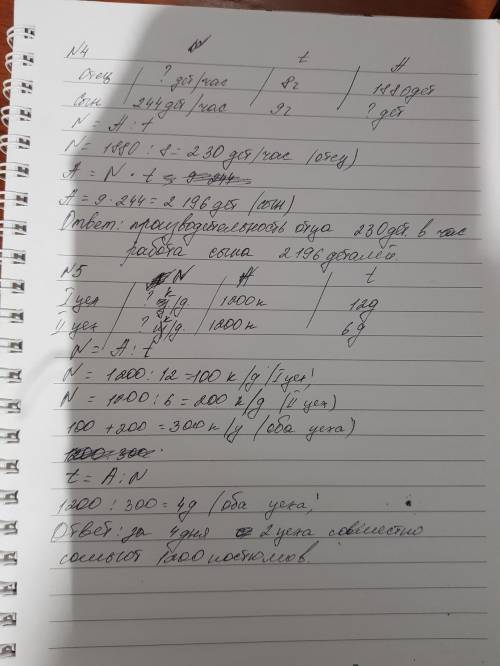 N4 N t A
Отец ? дет/час 8ч 1880дет
Сын 244дет/час 9ч ? дет
N = A : t
N = 1880 : 8 = 230 дет/час (отец)
A = N · t = 9·244
A = 9·244 = 2196дет (сын)
Ответ: производительность отца 230дет. в час
работа сына 2196деталей.
N5 N A t
I цех ? к/д. 1200к 12д
II цех ? к/д. 1200к 6д
N = A : t
N = 1200 : 12 = 100 к/д (I цех)
N = 1200 : 6 = 200 к/д (II цех)
100 + 200 = 300 к/д (оба цеха)
1200 : 300
t = A : N
1200 : 300 = 4д (оба цеха)
Ответ: за 4дня 2 цеха совместно
сошьют 1200 костюмов.